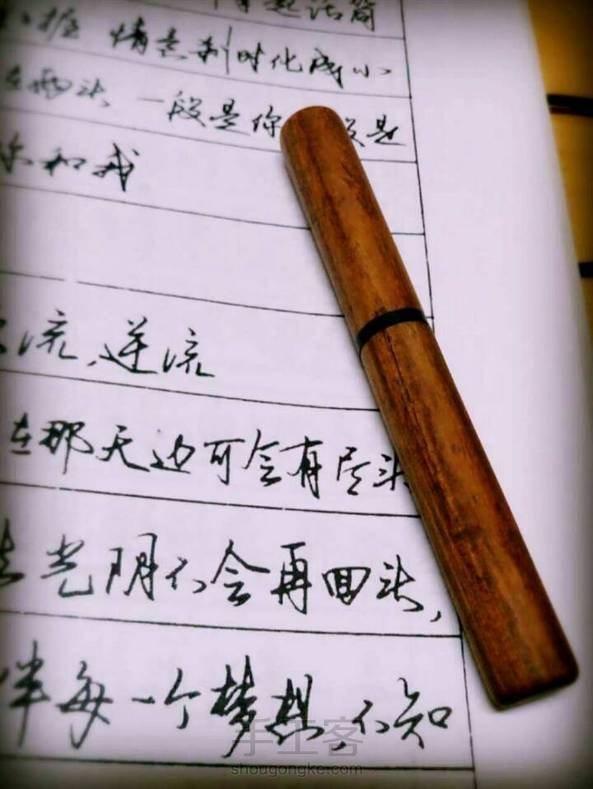 情意刹时化成小
在两头 一段是你 段是
和我
流、逆流
在那天边可会有尽头
光阴不会再回头,
伴每一个梦想,不知
手工客
shougongke.com